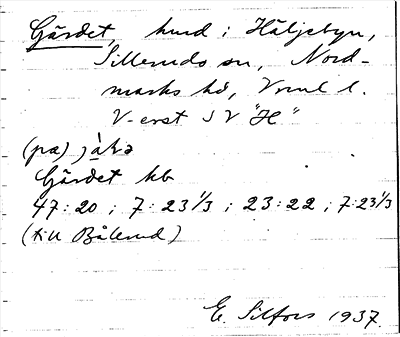 Gärdet, hmd i Häljebyn,
Silleruds sn, Nord-
marks hd, Vrml l.
V-erst SV "H"
(pæ) jàkə
Gärdet kb
47:20 ; 7:23 1/3 ; 23:22 ; 7:23 1/3
(till Bålerud)
E. Silfors 1937.